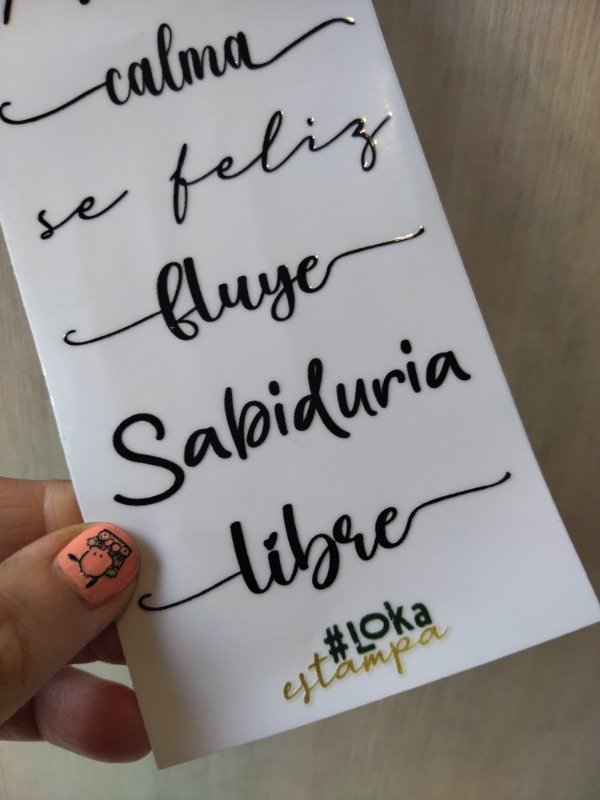 calma
se feliz
fluye
Sabiduria
libre
#LOKa
estampa